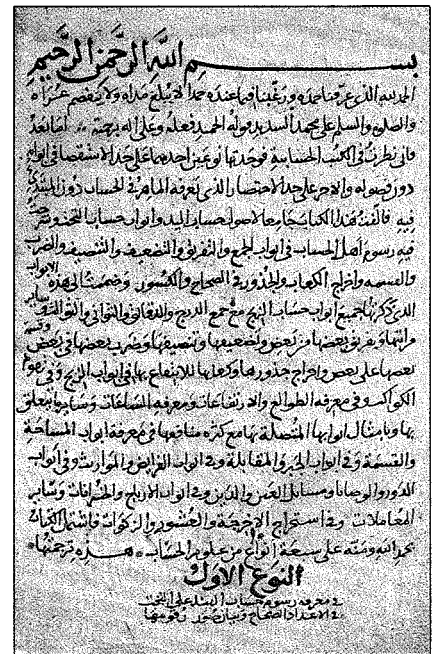 بسم الله الرحمن الرحيم
الحمد لله الذى عرفنا حمده ورغبنا فيما عنده حمدا لا يبلغ مداه ولا ينفصم عراه
والصلوة والسلم على محمد السديد قوله الحميد فعله وعلى اله برحمته اما بعد
فانى نظرت فى الكتب الحسابية فوجدتها نوعين احدهما على حد الاستقصا فى ابوابه
دون فصوله والاخر على حد الاختصار الذى يعرفه الماهر فى الحساب دون المبتدى
فيه فالفت هذا الكتاب جامعا لاصول حساب اليد وابواب حساب التخت وشرحت
فيه رسوم اهل الحساب فى ابواب الجمع والتفريق والتضعيف والتنصيف والضرب
والقسمه واخراج الكعاب والجذور فى الصحاح والكسور وضممت الى هذه الابواب
الذى ذكرتها جميع ابواب حساب الزيج مع جمع الدرج والدقائق والثوانى والثوالث وساير
مراتبها وتفريق بعضها من بعض وتضعيفها وتنصيفها وضرب بعضها فى بعض وقسم
بعضها على بعض واخراج جذورها وكعابها للانتفاع بها فى ابواب الزيج وفى تقويم
الكواكب وفى معرفه الطوالع والارتفاعات ومعرفه الساعات وساير ما يتعلق
بها وبامثال ابوابها المتصلة بها مع كثرة منافعها فى معرفة ابواب المساحة
والقسمة وفى ابواب الجبر والمقابلة وفى ابواب الفرايض والمواريث وفى ابواب
الدور والوصايا ومسائل العين والدين وفى ابواب الارباح والخسرانات وساير
المعاملات وفى استخراج الاخرجة والعشور والزكوات فاشتمل الكتاب
بحمد الله ومنه على سبعة انواع من علوم الحساب هذه ترجمتها
النوع الاول
فى معرفه رسوم حساب الهند على التخت
فى الاعداد الصحاح وبيان صور رقومها